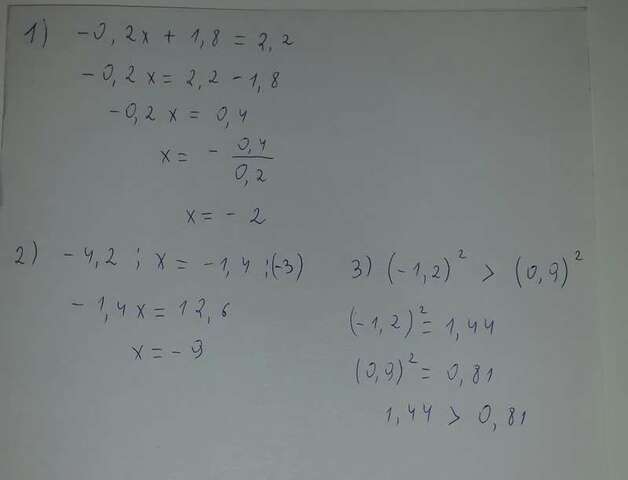 1) -0,2x + 1,8 = 2,2
-0,2x = 2,2 - 1,8
-0,2 x = 0,4
x = - 0,4/0,2
x = - 2
2) -4,2 ; x = -1,4 ; (-3)
-1,4x = 12,6
x = -9
3) (-1,2)² > (0,9)²
(-1,2)² = 1,44
(0,9)² = 0,81
1,44 > 0,81